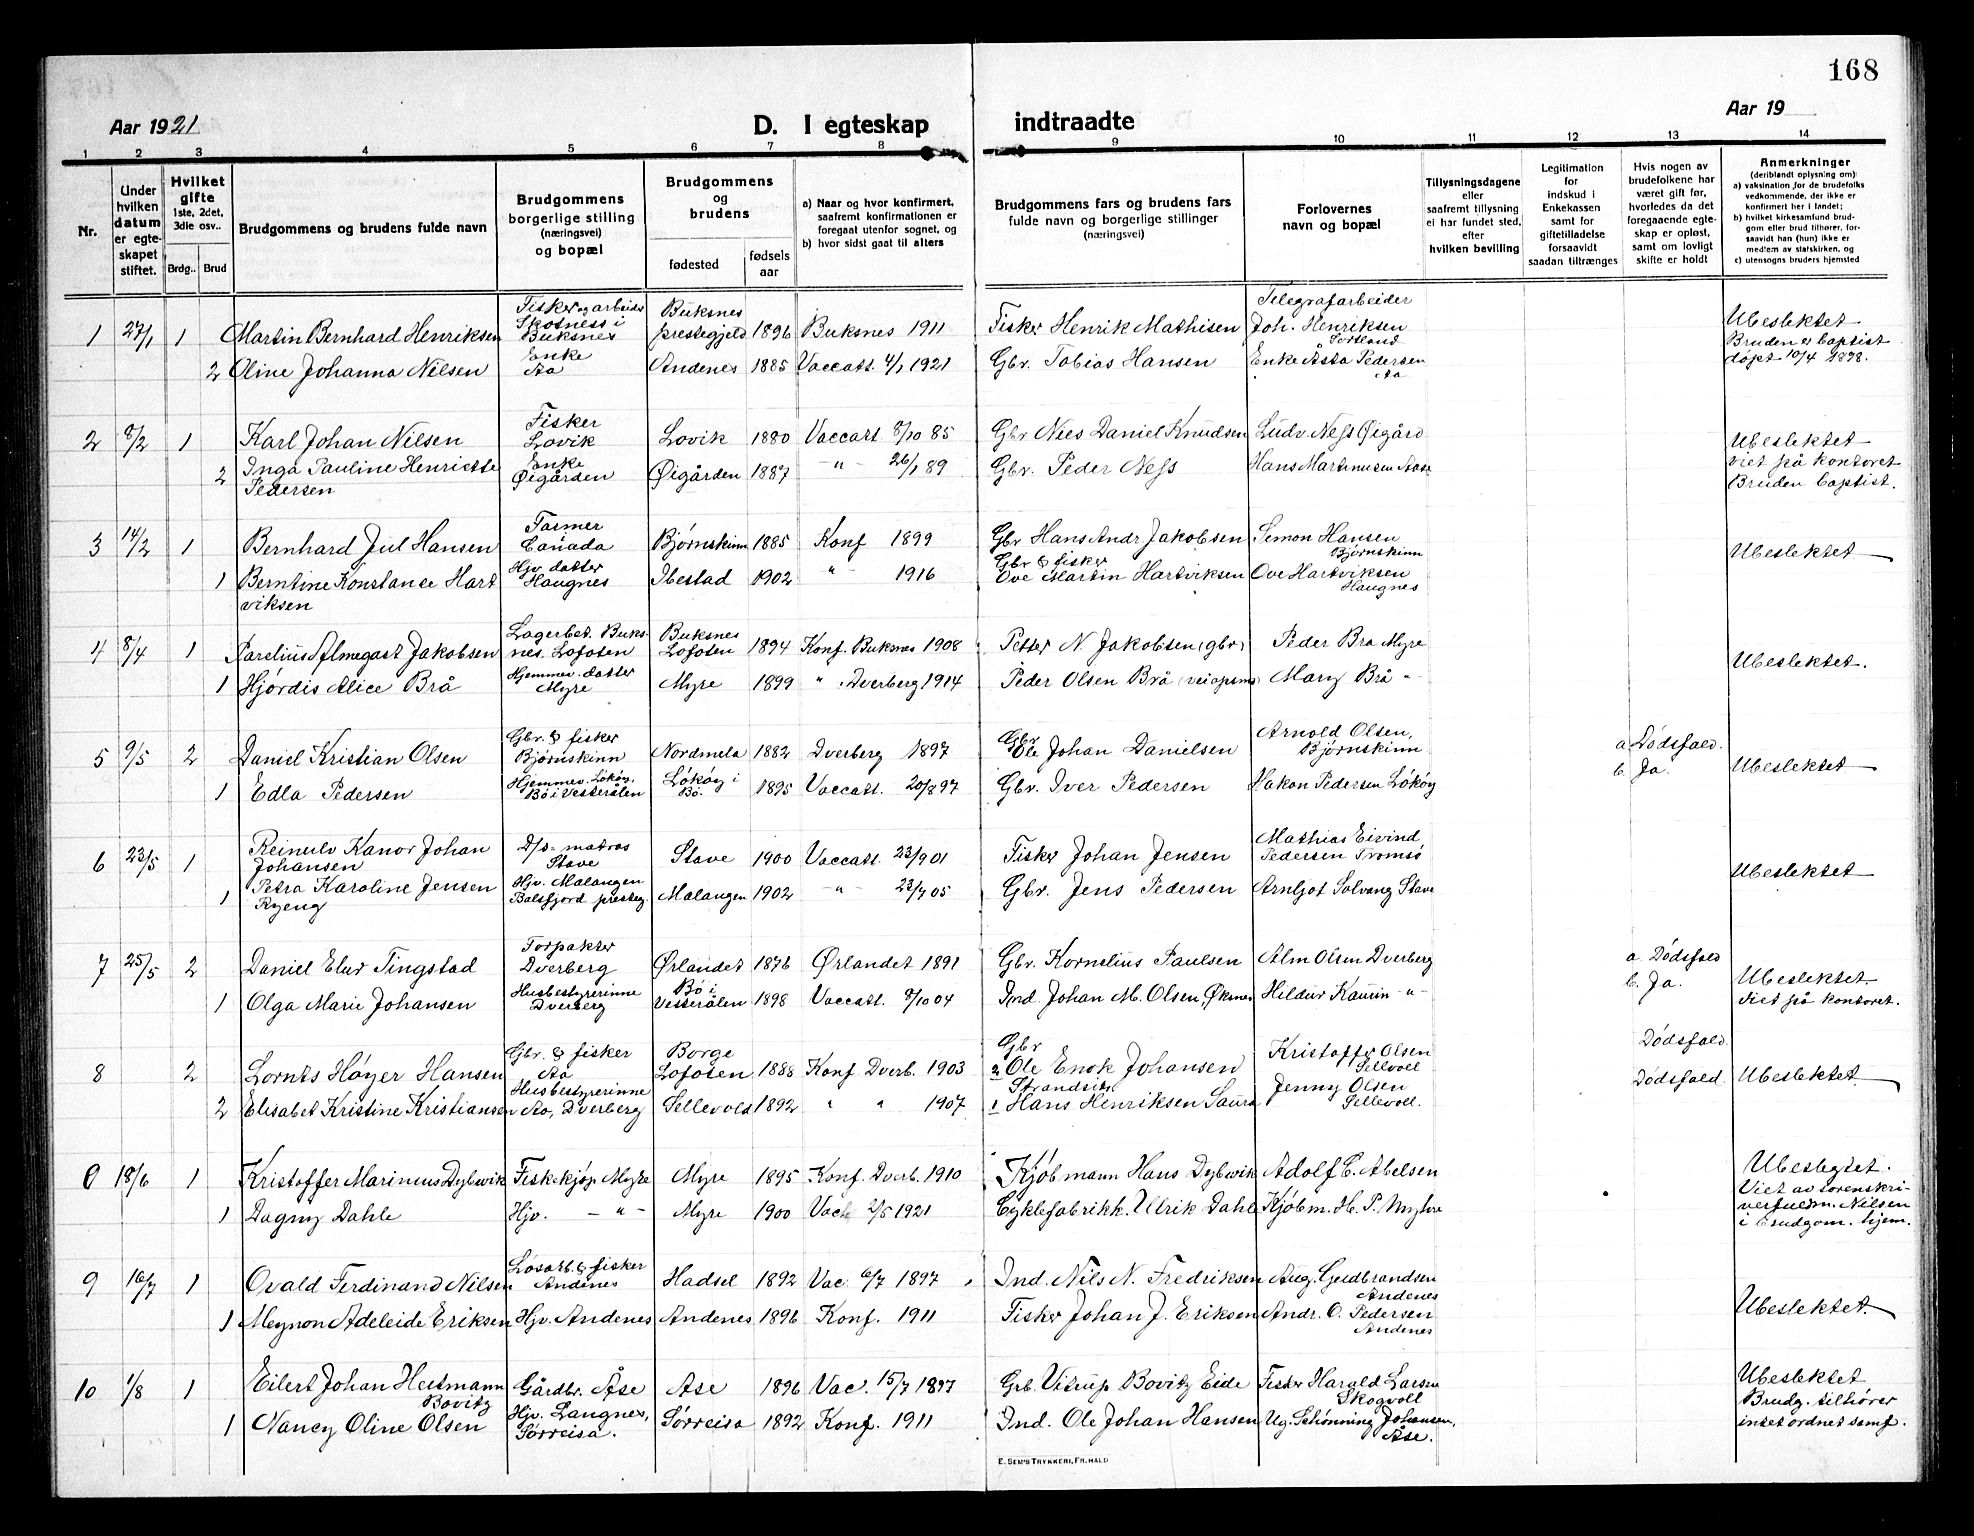 168
Aar 1921
D. I egteskap indtraadte
Aar 19
1 2 3 4 5 6 7 8 9 10 11 12 13 14
Nr.
Under hvilken datum er egteskapet stiftet.
Hvilket gifte
1ste, 2det, 3die osv..
Brdg.. Brud
Brudgommens og brudens fulde navn
Brudgommens borgerlige stilling (næringsvei) og bopæl
Brudgommens og brudens
fødested
fødsels aar
a) Naar og hvor konfirmert, saafremt konfirmationen er foregaat utenfor sognet, og
b) hvor sidst gaat til alters
Brudgommens fars og brudens fars fulde navn og borgerlige stillinger (næringsvei)
Forlovernes navn og bopæl
Tillysningsdagene eller saafremt tillysning ei har fundet sted, efter hvilken bevilling
Legitimation for indskud i Enkekassen samt for giftetilladelse forsaavidt saadan tiltrænges
Hvis nogen av brudefolkene har været gift før, hvorledes da det foregaaende egteskap er opløst, samt om lovligt skifte er holdt
Anmerkninger
(deriblandt oplysning om):
a) vaksination for de brudefolks vedkommende, der ikke er konfirmert her i landet;
b) hvilket kirkesamfund brudgom eller brud tilhører, forsaavidt han (hun) ikke er medlem av statskirken, og
c) utensogns bruders hjemsted
1 27/1 1 Martin Bernhard Henriksen Fisker og arbeids Skotness i Buksnes Buksnes prestegjeld 1896 Buksnes 1911 Fisker Henrik Mathisen Telegrafarbeider Joh. Henriksen Sortland Ubeslektet
2 Oline Johanna Nilsen Enke Aa Andenes 1885 Vaccatt. 4/1 1921 Gbr. Tobias Hansen Enke Åsta Pedersen Aa Bruden er baptist døpt 10/4 1898.
2 8/2 1 Karl Johan Nilsen Fisker Lovik Lovik 1880 Vaccatt 8/10 85 Gbr Niels Daniel Knudsen Ludv. Ness Øigård Ubeslektet
2 Inga Pauline Henriette Pedersen Enke Øigården Øigården 1887 -"- 26/1 89 Gbr. Peder Ness Hans Martinusen Aase viet på kontoret Bruden baptist.
3 14/2 1 Bernhard Jul Hansen Farmer Canada Bjørnskinn 1885 Konf 1899 Gbr Hans Andr Jakobsen Simon Hansen Bjørnskinn Ubeslektet
1 Berntine Konstanse Hartviksen Hjv. datter Haugnes Ibestad 1902 " 1916 Gbr & fisker Ove Martin Hartviksen Ove Hartviksen Haugnes
4 8/4 1 Parelius Almegast Jakobsen Lagerbet. Buksnes. Lofoten Buksnes Lofoten 1894 Konf. Buksnes 1908 Petter N. Jakobsen (gbr) Peder Bra Myre Ubeslektet.
1 Hjørdis Alice Brå Hjemmev. datter Myre Myre 1899 " Dverberg 1914 Peder Olsen Brå (veiopsm) Mary Brå "
5 9/5 2 Daniel Kristian Olsen Gbr. & fisker Bjørnskinn Nordmela 1882 Dverberg 1897 Gbr Ole Johan Danielsen Arnold Olsen, Bjørnskinn a Dødsfald. b. Ja. Ubeslektet
1 Edla Pedersen Hjemmev. Løkøy, Bø i Vesterålen Løkøy i Bø. 1895 Vaccatt. 20/8 97 Gbr. Iver Pedersen Hakon Pedersen Løkøy
6 23/5 1 Reinulv Kanor Johan Johansen D/s- matros Stave Stave 1900 Vaccatt. 23/9 01 Fisker Johan Jensen Mathias Eivind Pedersen Tromsø Ubeslektet
1 Petra Karoline Jensen Ryeng Hjv. Malangen Balsfjord presteg. Malangen 1902 -"- 23/7 05 Gbr. Jens Pedersen Arnljot Solvang Stave
7 25/5 2 Daniel Elur Tingstad Forpakter Dverberg Ørlandet 1876 Ørlandet 1891 Gbr. Kornelius Paulsen Alm Olsen Dverberg a. Dødsfald b. Ja. Ubeslektet.
1 Olga Marie Johansen Husbestyrerinne Dverberg Bø i Vesterålen 1898 Vaccatt. 8/10 04 Ind. Johan M. Olsen, Øksnes Hildur Kaurin -"- Viet på kontoret.
8 2 Lornts Høyer Hansen Gbr. & fisker Aa Borge Lofoten 1888 Konf Dverb. 1903 Gbr 2 Ole Enok Johansen Kristoffer Olsen Sellevoll Dødsfald.
2 Elisabet Kristine Kristiansen Husbestyrerinne Aa, Dverberg Sellevold 1892 " " 1907 Strandsitr. 1 Hans Henriksen Saura Jenny Olsen Sellevoll. Dødsfald Ubeslektet.
0 18/6 1 Kristoffer Marinius Dybwik Fiskekjøp Myre Myre 1895 Konf. Dverb. 1910 Kjøbmann Hans Dybwik Adolf C. Abelsen Ubeslegtet.
1 Dagny Dahle Hjv. -"- Myre 1900 Vac 2/5 1921 Cyklefabrikk. Ulrik Dahl Kjøbm. H. P. Myhre Viet av sorenskriverfuldm. Nilsen i brudgom. hjem.
9 16/7 1 Ovald Ferdinand Nilsen Løsarb & fisker Andenes Hadsel 1892 Vac. 6/7 1897 Ind. Nils N. Fredriksen Aug. Gudbrandsen Andenes Ubeslektet.
1 Meynon Adeleide Eriksen Hjv. Andenes Andenes 1896 Konf. 1911 Fisker Johan J. Eriksen Andr. O. Pedersen Andenes
10 1/8 1 Eilert Johan Heitmann Bovitz Gårdbr. Åse Ase 1896 Vac. 15/7 1897 Grb. Vitrup Bovitz Eide Fisker Harald Larsen Skogvoll Ubeslektet
1 Nancy Oline Olsen Hjv. Langnes, Sørreisa. Sørreisa 1892 Konf. 1911 Ind. Ole Johan Hansen Ug. Schønning Johansen, Åse. Brudg. tilhører intet ordnet samf.
E. SEM'S TRYKKERI, FR.HALD